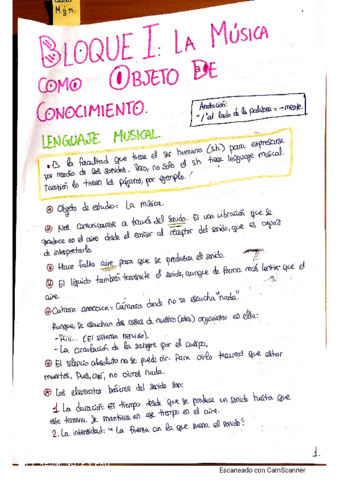 M y n.
BLOQUE I: LA MÚSICA
COMO OBJETO DE
CONOCIMIENTO.
Anotación:
-/ al lado de la palabra = -mente.
LENGUAJE MUSICAL.
• Es la facultad que tiene el ser humano (sh) para expresarse
por medio de los sonidos. Pero, no solo el sh tiene lenguaje musical.
También lo tienen los pájaros, por ejemplo.
Objeto de estudio: La música.
Nos comunicamos a través del sonido. Es una vibración que se
produce en el aire desde el emisor al receptor del sonido, que es capaz
de interpretarlo
Hace falta aire para que se produzca el sonido.
El líquido también transmite el sonido, aunque de forma más lenta que el
aire.
Cámara anecoica: Cámara donde no se escucha "nada".
Porque, se escuchan dos cosas de nuestro organismo en ella:
- Piii... (El sistema nervioso).
- La circulación de la sangre por el cuerpo.
El silencio absoluto no se puede oír. Para oírlo tenemos que estar
muertos. Pues, así, no oímos nada.
Los elementos básicos del sonido son:
1. La duración: El tiempo desde que se produce un sonido hasta que
este termina. Se mantiene en ese tiempo en el aire.
2. La intensidad: "La fuerza con la que suena el sonido".
1.
Escaneado con CamScanner